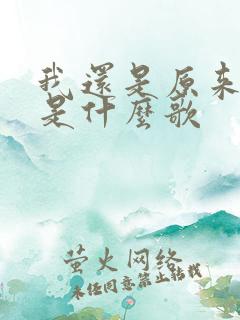 我還是原来
是什麼歌
萤火网络
未经同意禁止转载